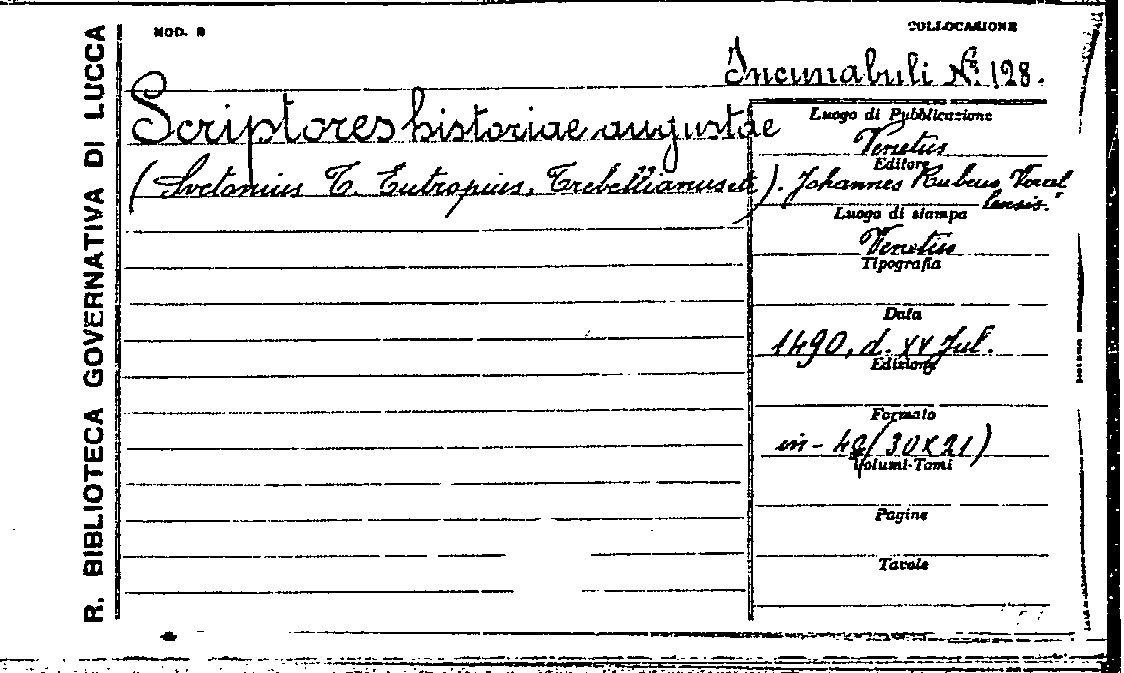 R. BIBLIOTECA GOVERNATIVA DI LUCCA
MOD. B
COLLOCAZIONE
Incunabuli N.º 128.
Scriptores historiae augustae
(Svetonius T. Eutropius, Trebellianus etc).
Luogo di Pubblicazione
Venetiis
Editore
Johannes Rubeus Vercel
lensis.
Luogo di stampa
Venetiis
Tipografia
Data
1490, d. XV Jul.
Edizione
Formato
in-4º (30X21)
Volumi-Tomi
Pagine
Tavole